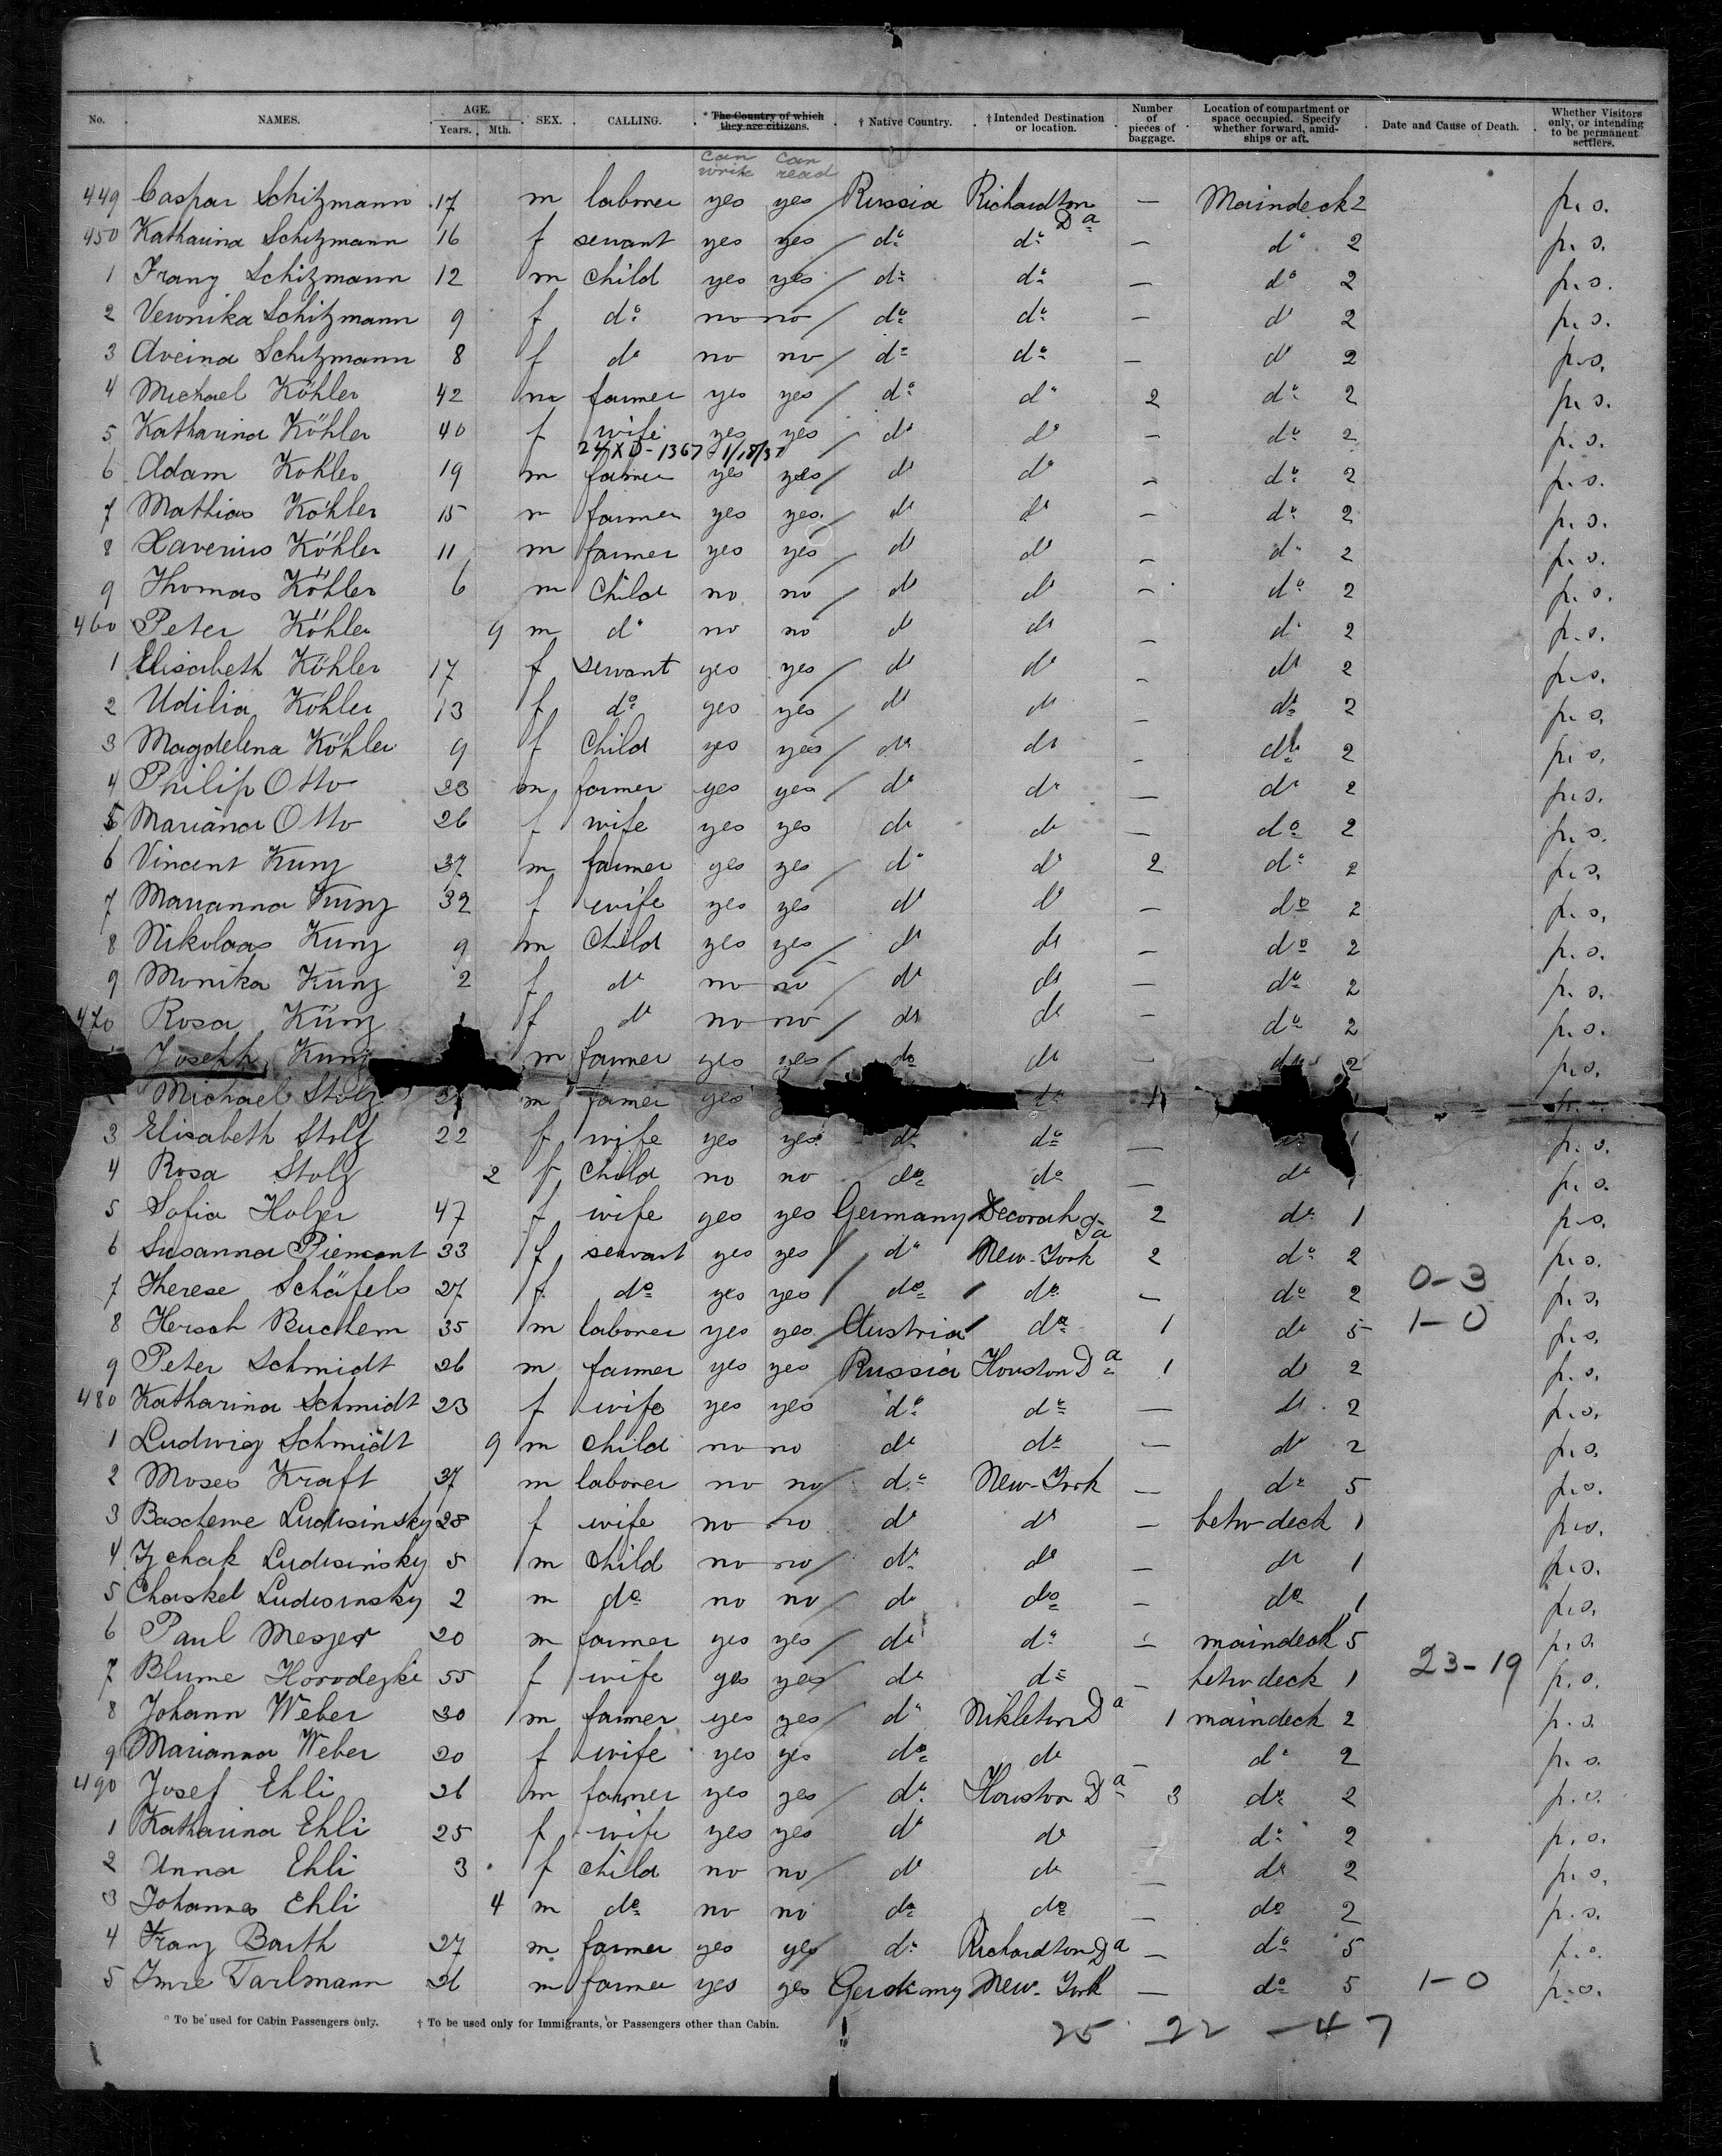 No. NAMES. AGE. Years. Mth. SEX. CALLING. * The Country of which they are citizens. † Native Country. † Intended Destination or location. Number of pieces of baggage. Location of compartment or space occupied. Specify whether forward, amidships or aft. Date and Cause of Death. Whether Visitors only, or intending to be permanent settlers.
can write can read
449 Caspar Schitzmann 17 m laborer yes yes Russia Richardton Da — Maindeck 2 p. s.
450 Katharina Schitzmann 16 f servant yes yes do do — do 2 p. s.
1 Franz Schitzmann 12 m child yes yes do do — do 2 p. s.
2 Veronika Schitzmann 9 f do no no do do — do 2 p. s.
3 Aveina Schitzmann 8 f do no no do do — do 2 p. s.
4 Michael Köhler 42 m farmer yes yes do do 2 do 2 p. s.
5 Katharina Köhler 40 f wife yes yes do do — do 2 p. s.
24 X 0 - 1367 1/18/37
6 Adam Köhler 19 m farmer yes yes do do — do 2 p. s.
7 Mathias Köhler 15 m farmer yes yes do do — do 2 p. s.
8 Xaverius Köhler 11 m farmer yes yes do do — do 2 p. s.
9 Thomas Köhler 6 m child no no do do — do 2 p. s.
460 Peter Köhler 9 m do no no do do — do 2 p. s.
1 Elisabeth Köhler 17 f servant yes yes do do — do 2 p. s.
2 Udilia Köhler 13 f do yes yes do do — do 2 p. s.
3 Magdelena Köhler 9 f child yes yes do do — do 2 p. s.
4 Philip Otto 23 m farmer yes yes do do — do 2 p. s.
5 Mariana Otto 26 f wife yes yes do do — do 2 p. s.
6 Vincent Kunz 37 m farmer yes yes do do 2 do 2 p. s.
7 Marianna Kunz 32 f wife yes yes do do — do 2 p. s.
8 Nikolaas Kunz 9 m child yes yes do do — do 2 p. s.
9 Monika Kunz 2 f do no no do do — do 2 p. s.
470 Rosa Künz 1 f do no no do do — do 2 p. s.
Joseph Kunz m farmer yes yes do do — do 2 p. s.
Michael Stolz m farmer yes do 1 p. s.
3 Elisabeth Stolz 22 f wife yes yes do do — 1 p. s.
4 Rosa Stolz 2 f child no no do do — do 1 p. s.
5 Sofia Holzer 47 f wife yes yes Germany Decorah Ia 2 do 1 p. s.
6 Susanna Piemont 33 f servant yes yes do New-York 2 do 2 p. s.
7 Therese Schäfels 27 f do yes yes do do — do 2 0-3 p. s.
8 Hersch Buchhem 35 m laborer yes yes Austria do 1 do 5 1-0 p. s.
9 Peter Schmidt 26 m farmer yes yes Russia Houston Da 1 do 2 p. s.
480 Katharina Schmidt 23 f wife yes yes do do — do 2 p. s.
1 Ludwig Schmidt 9 m child no no do do — do 2 p. s.
2 Moses Kraft 37 m laborer no no do New-York — do 5 p. s.
3 Bascheme Ludisinsky 28 f wife no no do do — betw deck 1 p. s.
4 Izchak Ludisinsky 5 m child no no do do — do 1 p. s.
5 Chaskel Ludisinsky 2 m do no no do do — do 1 p. s.
6 Paul Mesjer 20 m farmer yes yes do do — maindeck 5 p. s.
7 Blume Horodezke 55 f wife yes yes do do — betw deck 1 23-19 p. s.
8 Johann Weber 30 m farmer yes yes do Nikleton Da 1 maindeck 2 p. s.
9 Marianna Weber 20 f wife yes yes do do — do 2 p. s.
490 Josef Ehli 26 m farmer yes yes do Houston Da 3 do 2 p. s.
1 Katharina Ehli 25 f wife yes yes do do — do 2 p. s.
2 Anna Ehli 3 f child no no do do — do 2 p. s.
3 Johannes Ehli 4 m do no no do do — do 2 p. s.
4 Franz Barth 27 m farmer yes yes do Richardton Da — do 5 p. s.
5 Imre Tarlmann 26 m farmer yes yes New-York — do 5 1-0 p. s.
* To be used for Cabin Passengers only. † To be used only for Immigrants, or Passengers other than Cabin.
25 22 - 47